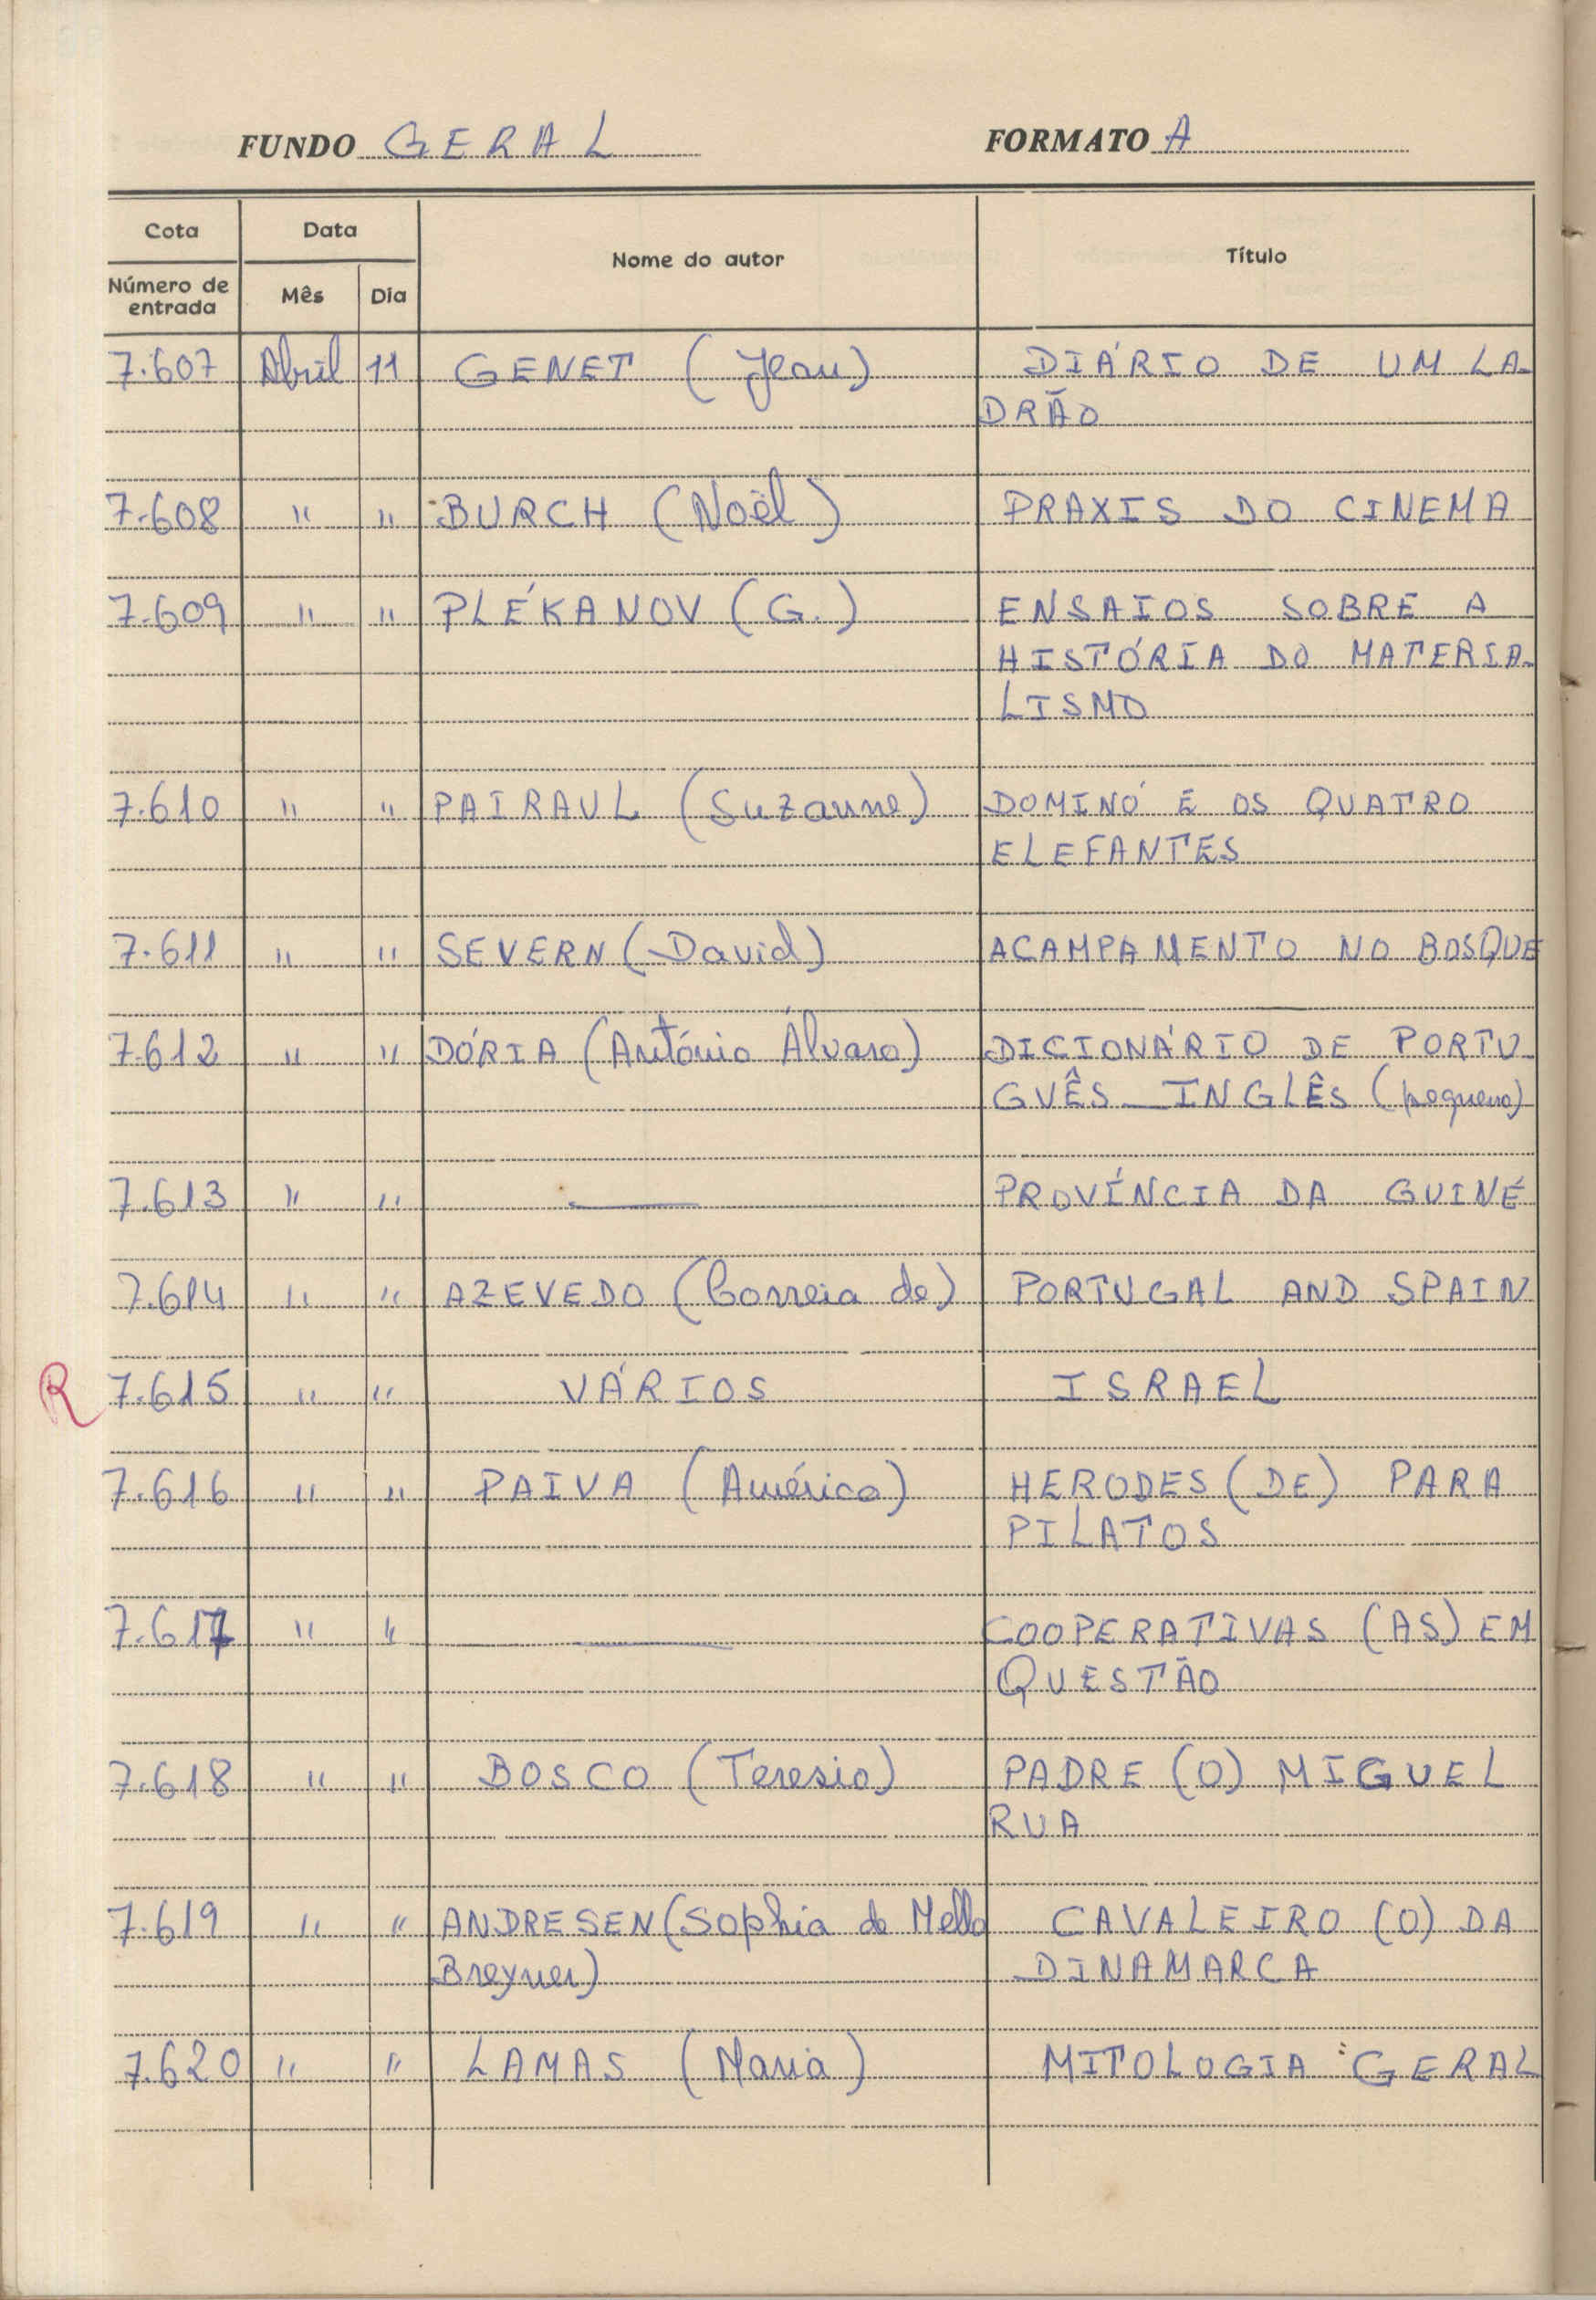 FUNDO GERAL FORMATO A
Cota Data Nome do autor Título
Número de entrada Mês Dia
7.607 Abril 11 GENET (Jean) DIÁRIO DE UM LA-
DRÃO
7.608 " " BURCH (Noël) PRAXIS DO CINEMA
7.609 " " PLÉKANOV (G.) ENSAIOS SOBRE A
HISTÓRIA DO MATERIA-
LISMO
7.610 " " PAIRAUL (Suzanne) DOMINÓ E OS QUATRO
ELEFANTES
7.611 " " SEVERN (David) ACAMPAMENTO NO BOSQUE
7.612 " " DÓRIA (António Álvaro) DICIONÁRIO DE PORTU-
GUÊS-INGLÊS (pequeno)
7.613 " " — PROVÍNCIA DA GUINÉ
7.614 " " AZEVEDO (Correia de) PORTUGAL AND SPAIN
R 7.615 " " VÁRIOS ISRAEL
7.616 " " PAIVA (Américo) HERODES (DE) PARA
PILATOS
7.617 " " — COOPERATIVAS (AS) EM
QUESTÃO
7.618 " " BOSCO (Teresio) PADRE (O) MIGUEL
RUA
7.619 " " ANDRESEN (Sophia de Mello CAVALEIRO (O) DA
Breyner) DINAMARCA
7.620 " " LAMAS (Maria) MITOLOGIA GERAL